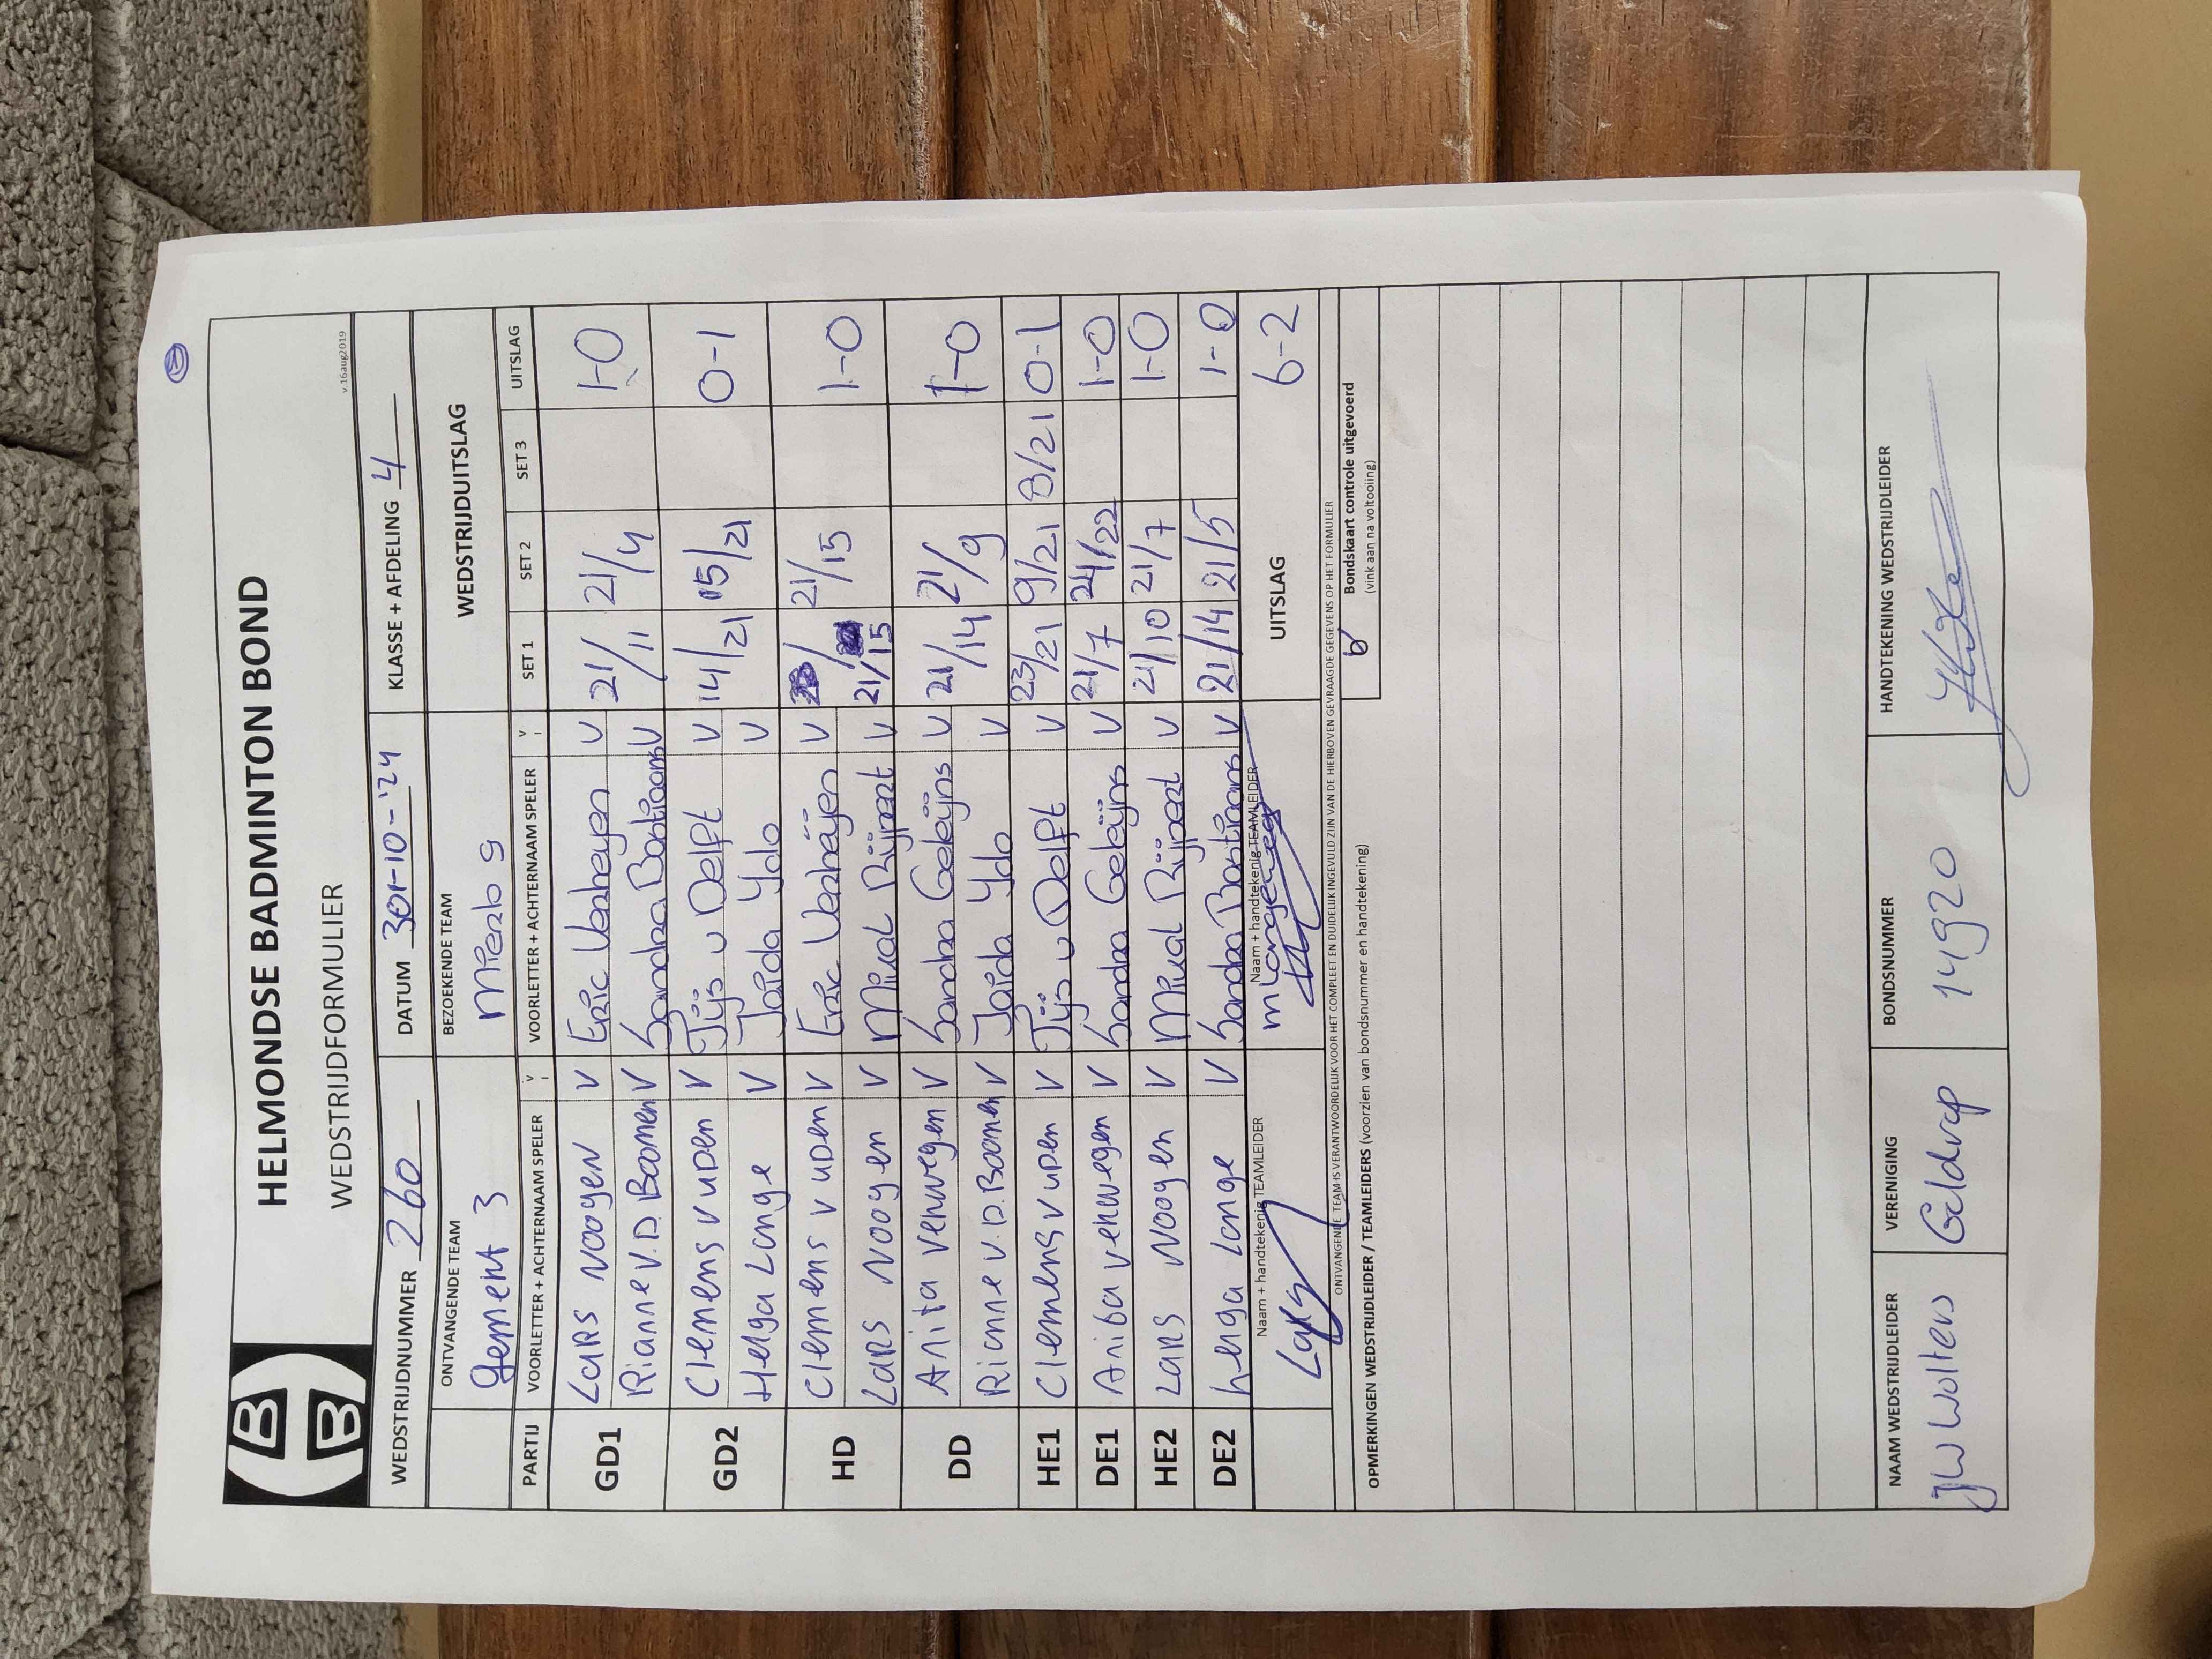 HELMONDSE BADMINTON BOND
WEDSTRIJDFORMULIER
v.16aug2019
WEDSTRIJDNUMMER 260 DATUM 30-10-'24 KLASSE + AFDELING 4
ONTVANGENDE TEAM BEZOEKENDE TEAM WEDSTRIJDUITSLAG
Gemert 3 Mierlo 9
PARTIJ VOORLETTER + ACHTERNAAM SPELER V VOORLETTER + ACHTERNAAM SPELER V SET 1 SET 2 SET 3 UITSLAG
GD1 Lars Nooyen V Eric Verheyen V 21/11 21/4 1-0
Rianne v.D. Boomen V Sandra Bastiaans V
GD2 Clemens v uden V Tijs v Delft V 14/21 15/21 0-1
Helga Lange V Jaïda Ydo V
HD Clemens v uden V Eric Verheijen V 21/15 21/15 1-0
Lars Nooyen V Miral Rijpert V
DD Anita Verwegen V Sandra Geleijns V 21/14 21/9 1-0
Rianne v.D. Boomen V Jaïda Ydo V
HE1 Clemens v uden V Tijs v Delft V 23/21 9/21 8/21 0-1
DE1 Anita verwegen V Sandra Geleijns V 21/7 24/22 1-0
HE2 Lars Nooyen V Miral Rijpert V 21/10 21/7 1-0
DE2 helga Lange V Sandra Bastiaans V 21/14 21/5 1-0
Naam + handtekenig TEAMLEIDER Naam + handtekenig TEAMLEIDER UITSLAG 6-2
ONTVANGENDE TEAM IS VERANTWOORDELIJK VOOR HET COMPLEET EN DUIDELIJK INGEVULD ZIJN VAN DE HIERBOVEN GEVRAAGDE GEGEVENS OP HET FORMULIER
OPMERKINGEN WEDSTRIJDLEIDER / TEAMLEIDERS (voorzien van bondsnummer en handtekening)
Bondskaart controle uitgevoerd
(vink aan na voltooiing)
NAAM WEDSTRIJDLEIDER VERENIGING BONDSNUMMER HANDTEKENING WEDSTRIJDLEIDER
JW Wolters Geldrop 14920